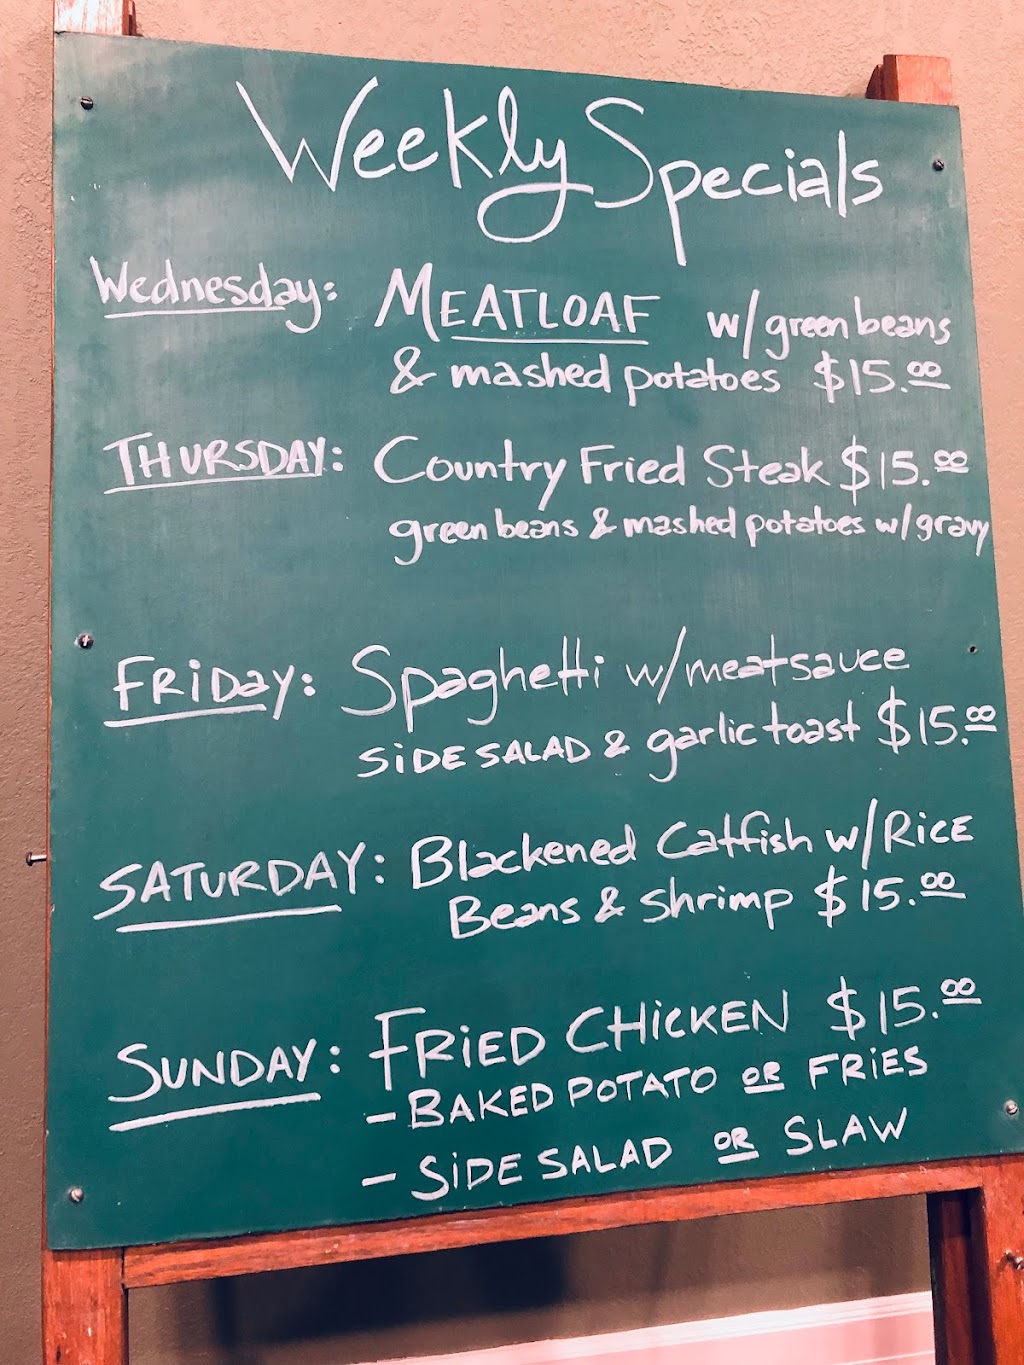 Weekly Specials
Wednesday: MEATLOAF w/ green beans
& mashed potatoes $15.00
THURSDAY: Country Fried Steak $15.00
green beans & mashed potatoes w/ gravy
FRiDay: Spaghetti w/ meatsauce
SiDE SALAD & garlic toast $15.00
SATURDAY: Blackened Catfish w/ RicE
Beans & shrimp $15.00
SUNDAY: FRiED CHiCKEN $15.00
- BAKED POTATO OR FRiES
- SiDE SALAD OR SLAW